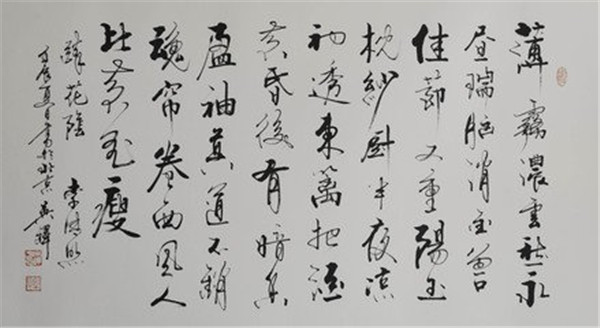 薄霧濃雲愁永
昼瑞脑消金兽
佳節又重陽玉
枕紗厨半夜凉
初透東篱把酒
黄昏後有暗香
盈袖莫道不銷
魂帘卷西风人
比黄花瘦
醉花陰 李清照
壬辰夏日書於北京 輝